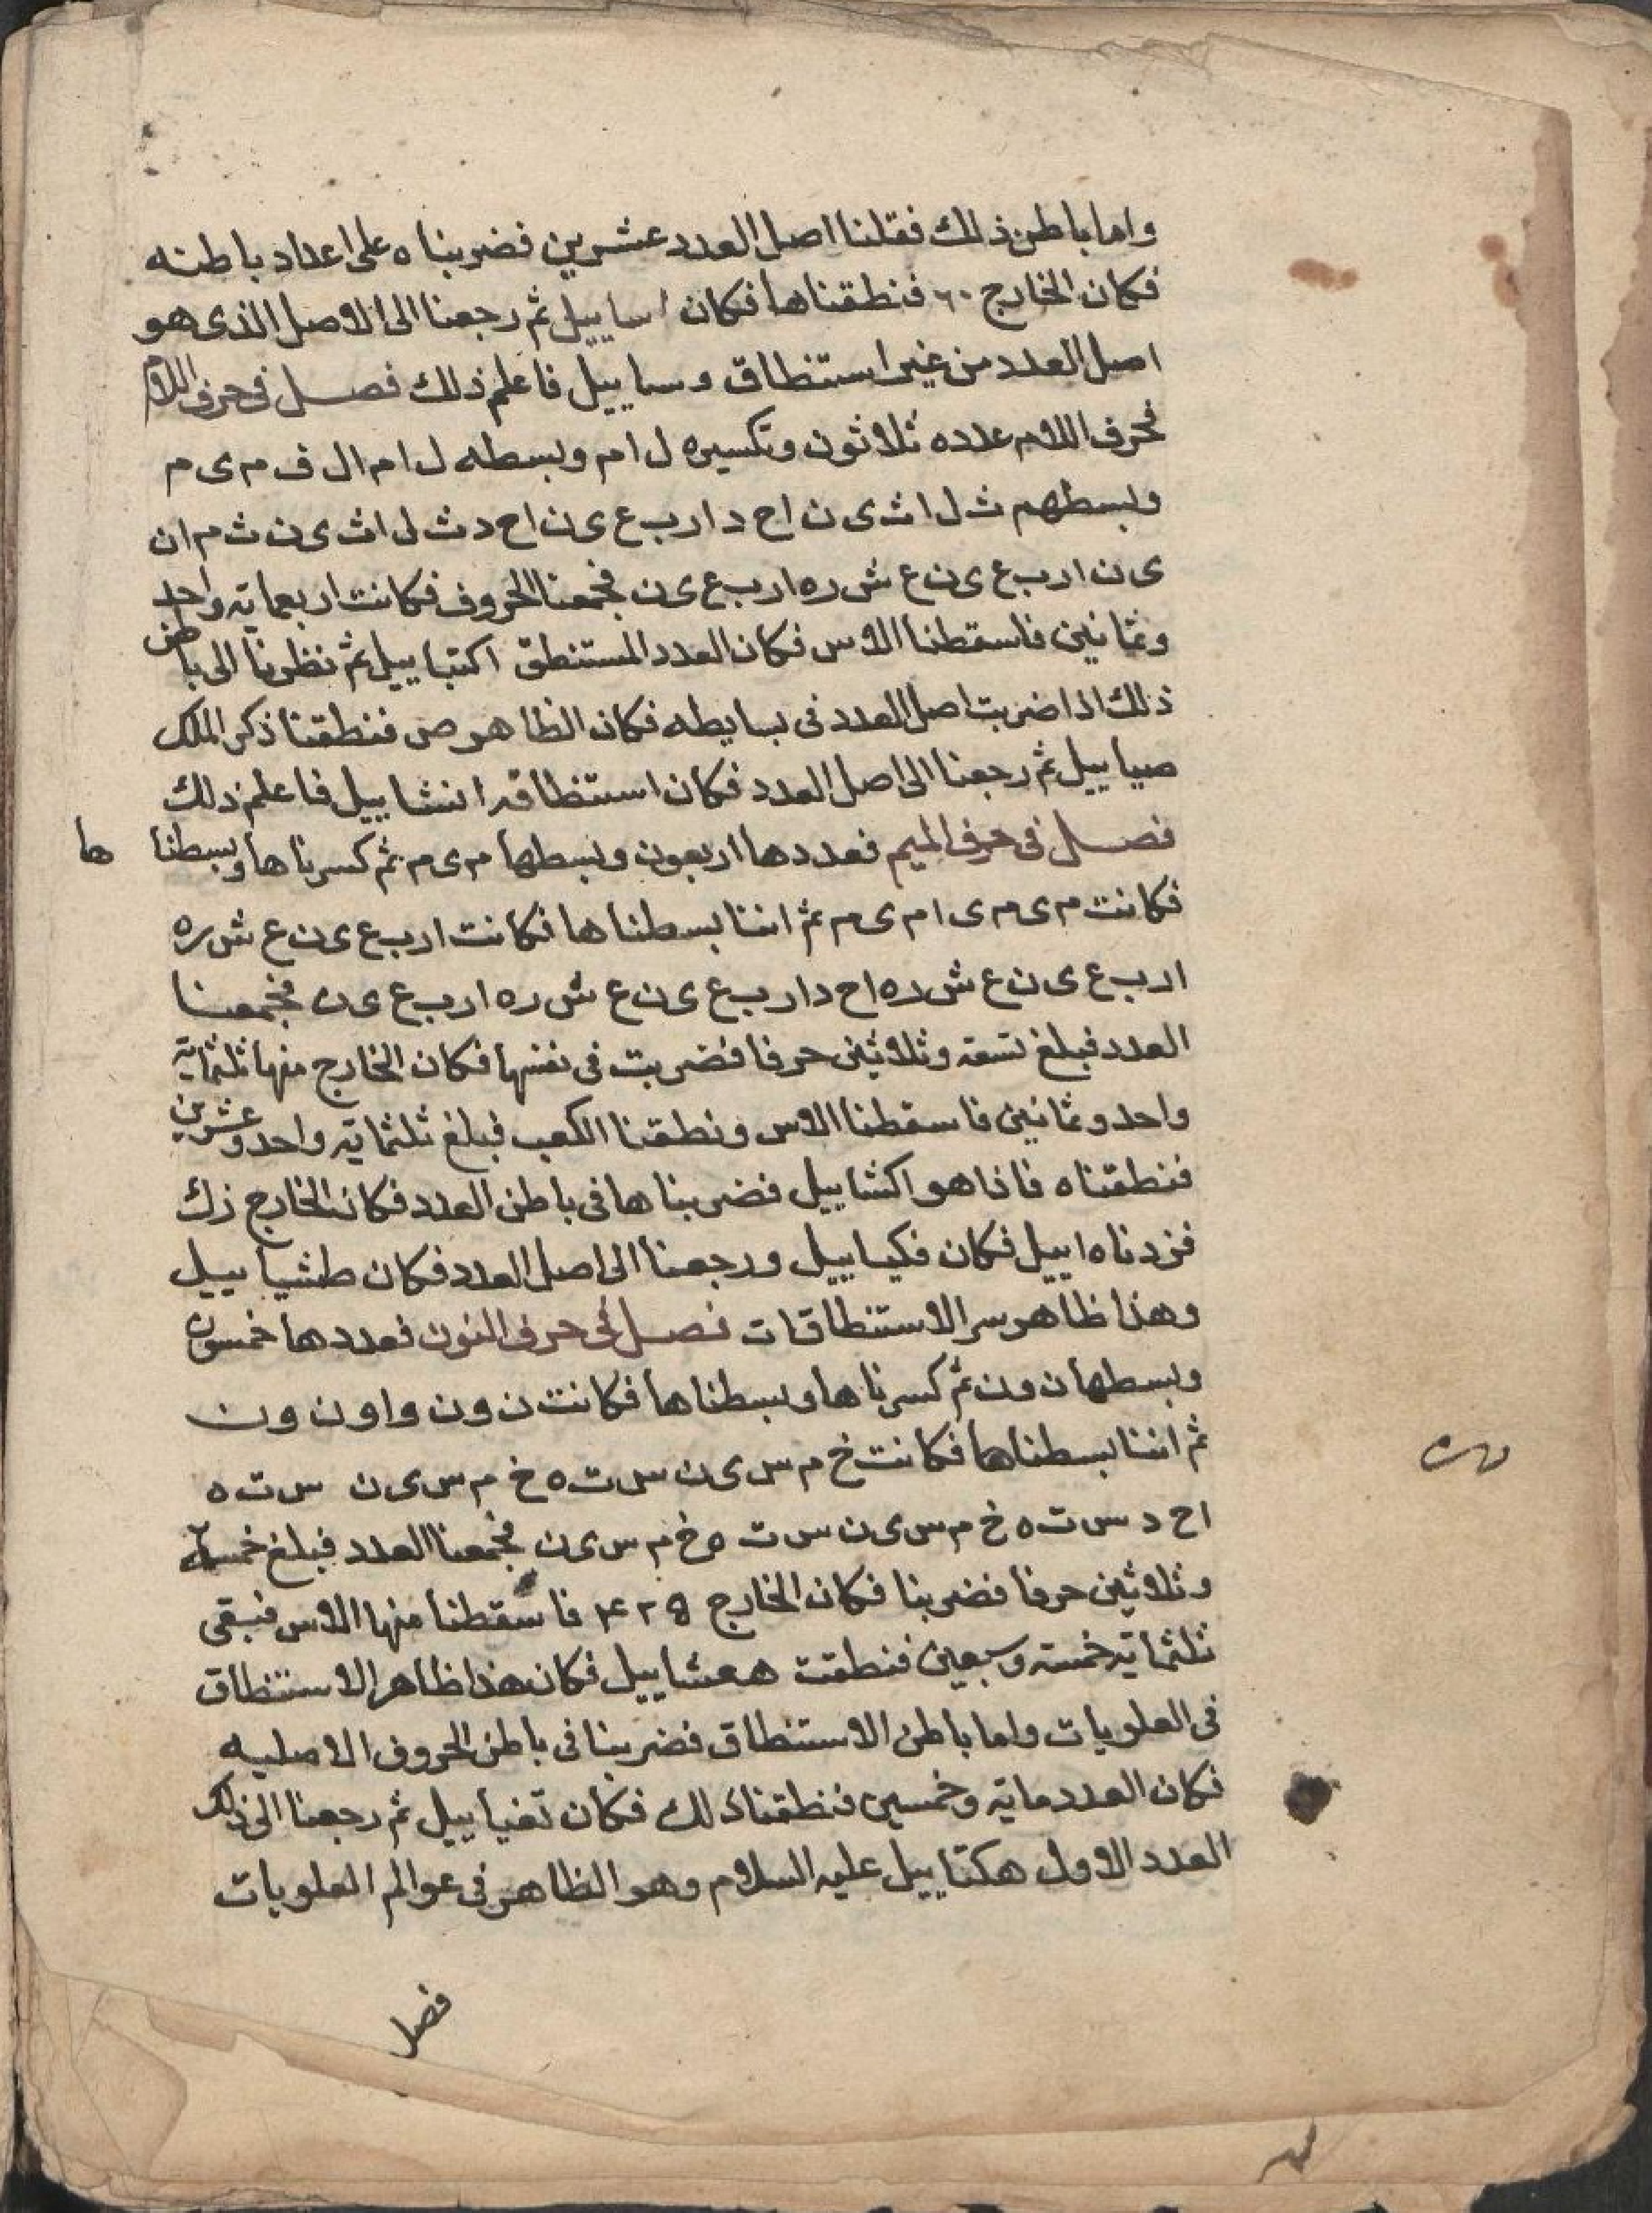 واما باطن ذلك فقلنا اصل العدد عشرين فضربناه على اعداد باطنه
فكان الخارج ٦٠ فنطقناها فكان اساييل ثم رجعنا الى الاصل الذى هو
اصل العدد من غير استنطاق وساييل فاعلم ذلك فصل فى حرف اللام
فحرف اللام عدده ثلاثون وتكسيره ل ام وبسطه ل ام ال ف م ى م
وبسطهم ث ل اث ى ن اح د ار ب ع ى ن اح د ث ل اث ى ن ث م ان
ى ن ار ب ع ى ن ع ش ر ه ار ب ع ى ن فجمعنا الحروف فكانت اربعماية واحد
وثمانين فاسقطنا الاس فكان العدد المستنطق اكتباييل ثم نظرنا الى باطن
ذلك اذا ضربت اصل العدد فى بسايطه فكان الظاهر ص فنطقنا ذكر الملك
صياييل ثم رجعنا الى اصل العدد فكان استنطاقه انشاييل فاعلم ذلك
فصل فى حرف الميم فعددها اربعون وبسطها م ى م ثم كسرناها وبسطنا ها
فكانت م ى م ى ا م ى م ثم اننا بسطناها فكانت ار ب ع ى ن ع ش ر ه
ار ب ع ى ن ع ش ر ه اح د ار ب ع ى ن ع ش ر ه ار ب ع ى ن فجمعنا
العدد فبلغ تسعة وثلاثين حرفا فضربت فى نفسها فكان الخارج منها ثلثماية
واحد وثمانين فاسقطنا الاس ونطقنا الكعب فبلغ ثلثماية واحد وعشرين
فنطقناه فاذا هو اكشاييل فضربناها فى باطن العدد فكان الخارج زك
فزدناه اييل فكان فكياييل ورجعنا الى اصل العدد فكان طشياييل
وهذا ظاهر سر الاستنطاقات فصل فى حرف النون فعددها خمسون
وبسطها ن ون ثم كسرناها وبسطناها فكانت ن ون واو ن ون
ثم اننا بسطناها فكانت خ م س ى ن س ت ه خ م س ى ن س ت ه
اح د س ت ه خ م س ى ن س ت ه خ م س ى ن فجمعنا العدد فبلغ خمسة
وثلاثين حرفا فضربنا فكان الخارج ٤٢٥ فاسقطنا منها الاس فبقى
ثلثماية خمسة وسبعين فنطقت هعشاييل فكان هذا ظاهر الاستنطاق
فى العلويات واما باطن الاستنطاق فضربنا فى باطن الحروف الاصليه
فكان العدد ماية وخمسين فنطقنا ذلك فكان تفياييل ثم رجعنا الى ذلك
العدد الاول هكتاييل عليه السلام وهو الظاهر فى عوالم العلويات
فصل